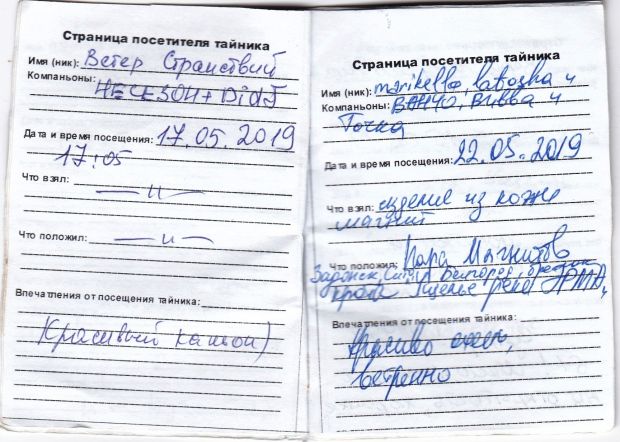 Страница посетителя тайника
Имя (ник): Ветер Странствий
Компаньоны:
НЕСЕЗОН + DidJ
Дата и время посещения: 17.05.2019
17:05
Что взял:
— " —
Что положил: — " —
Впечатления от посещения тайника:
Красивый каньон)
Страница посетителя тайника
Имя (ник): marikella, labozha и
Компаньоны: ВАНЧО, Вивва и
Точка
Дата и время посещения: 22.05.2019
Что взял: изделие из кожи
магнит
Что положил: Пара магнитов
Задонск, Белгород, брелок
ущелье река
Впечатления от посещения тайника:
Красиво очень,
ветренно